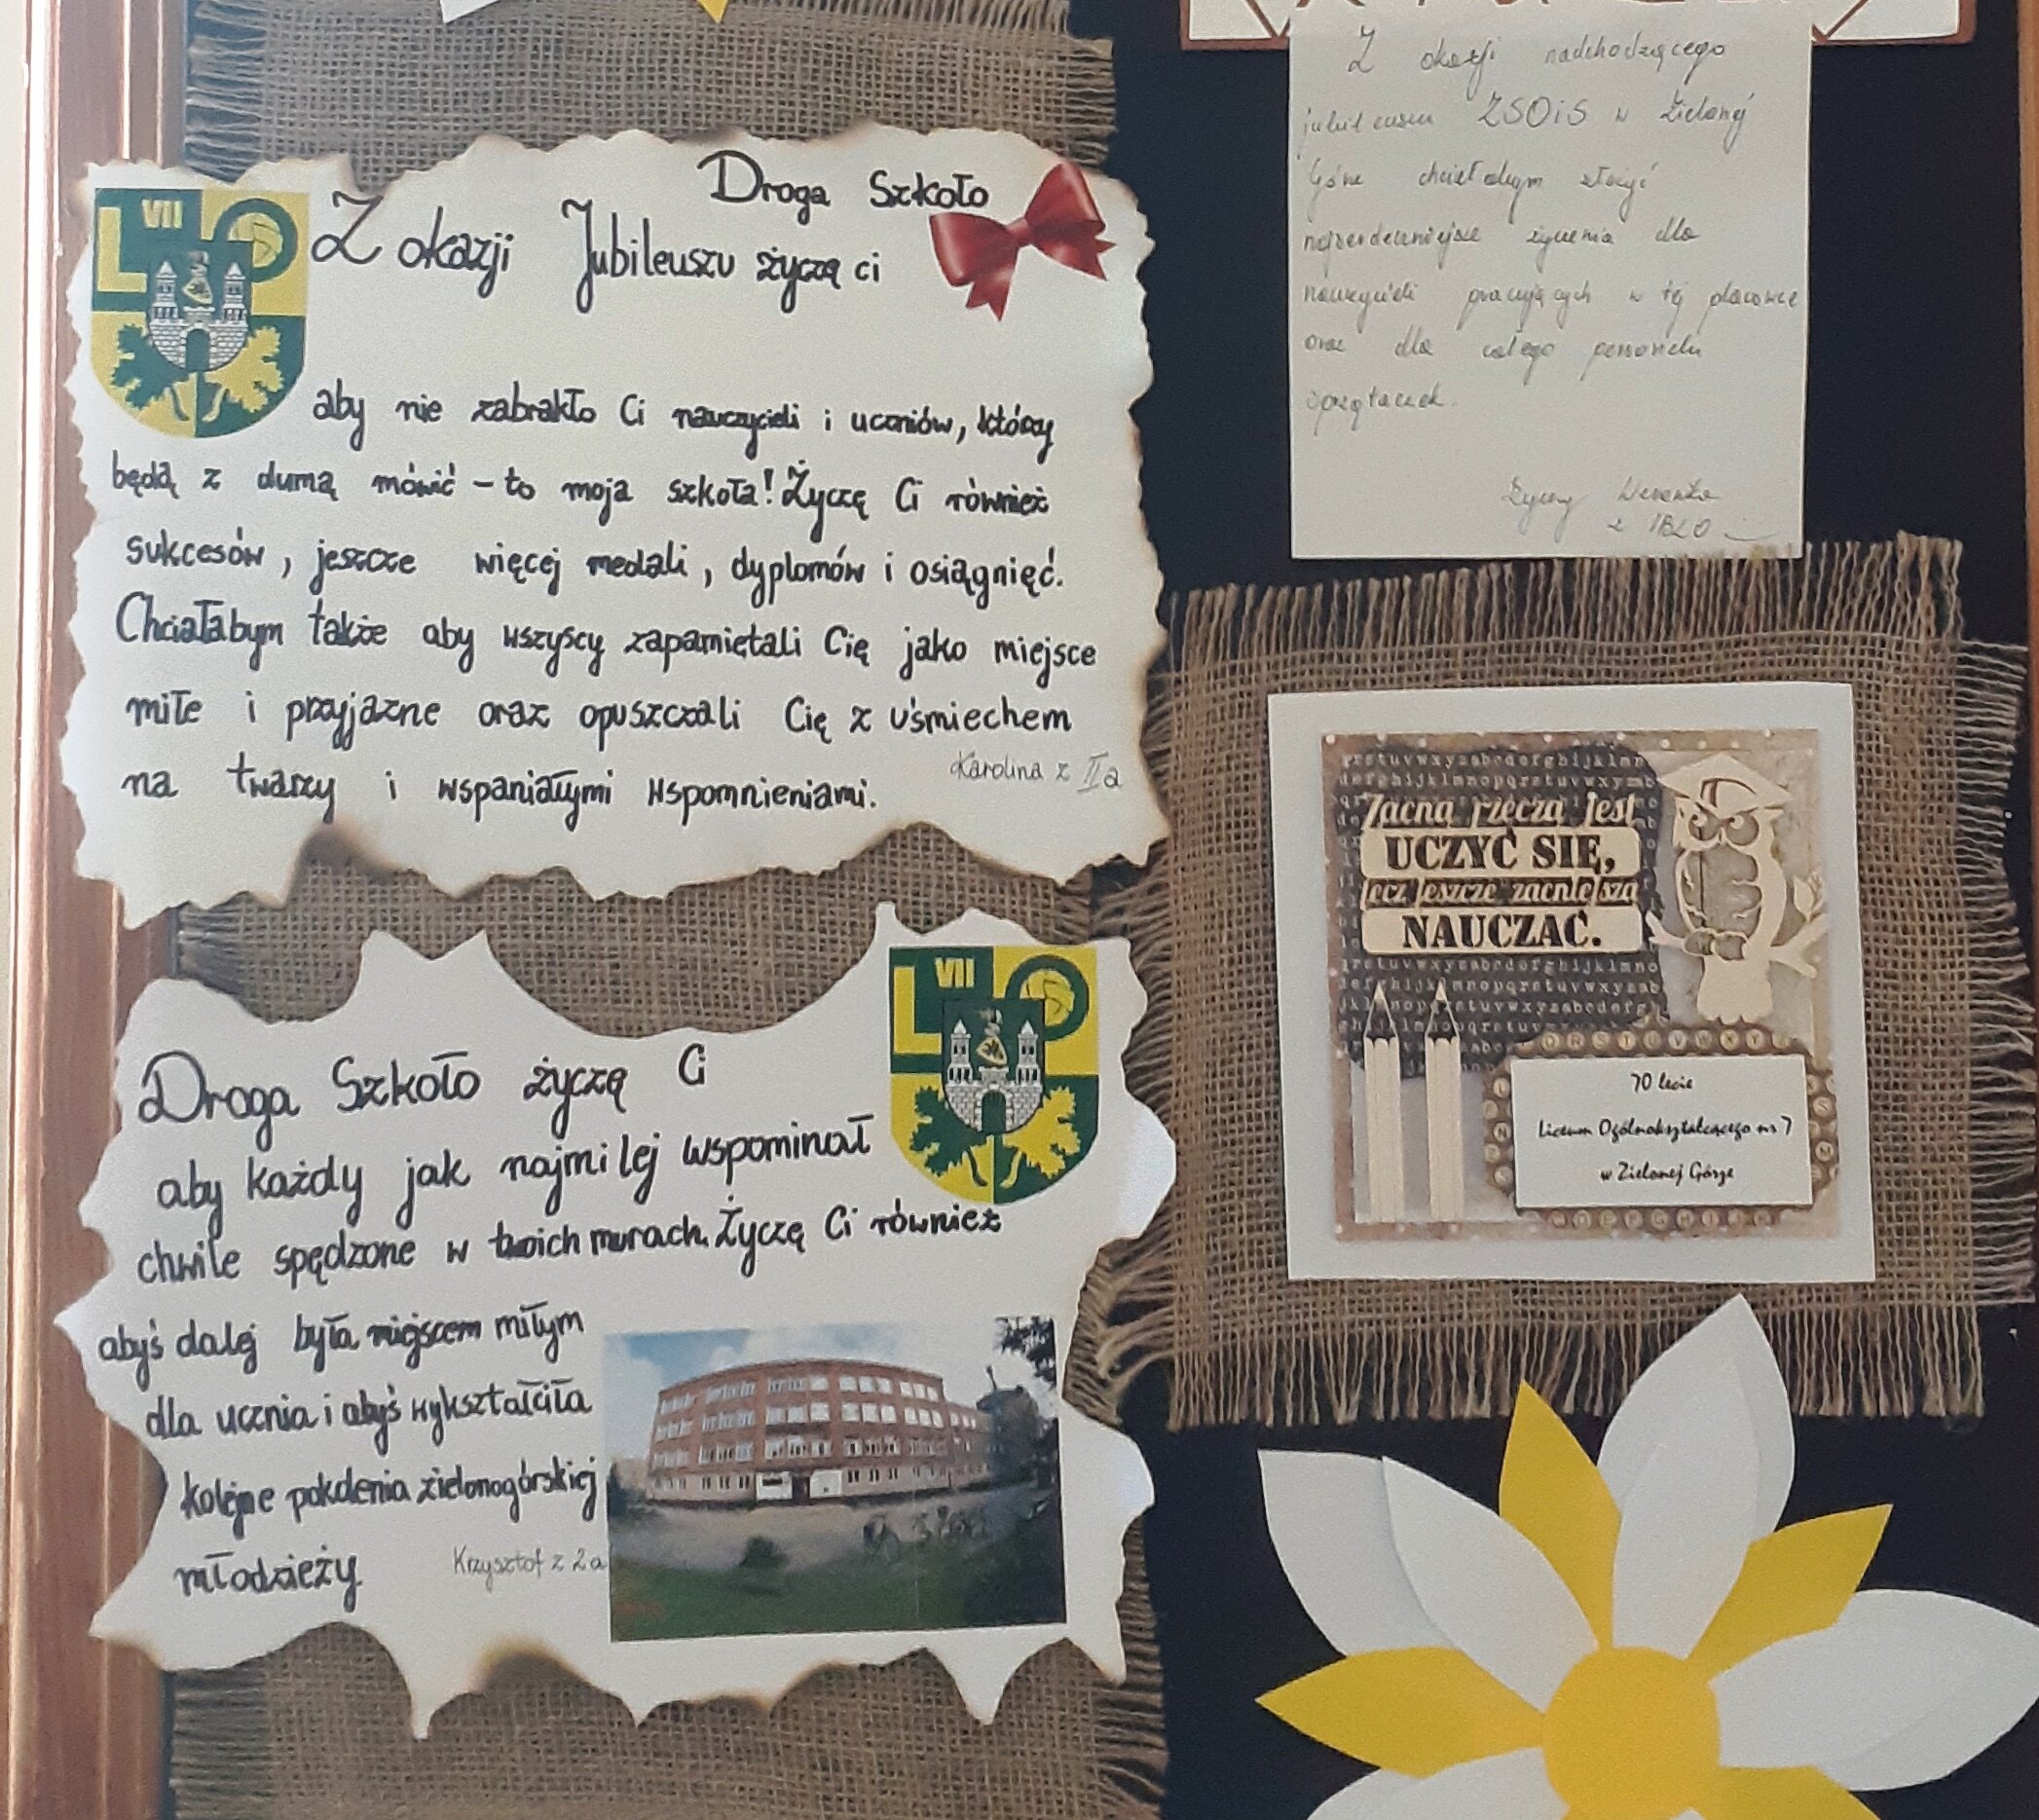 Droga Szkoło
Z okazji Jubileuszu życzę ci
aby nie zabrakło Ci nauczycieli i uczniów, którzy
będą z dumą mówić – to moja szkoła! Życzę Ci również
sukcesów, jeszcze więcej medali, dyplomów i osiągnięć.
Chciałabym także aby wszyscy zapamiętali Cię jako miejsce
miłe i przyjazne oraz opuszczali Cię z uśmiechem
na twarzy i wspaniałymi wspomnieniami.
Karolina z IIa
VII
L
Droga Szkoło życzę Ci
aby każdy jak najmilej wspominał
chwile spędzone w twoich murach. Życzę Ci również
abyś dalej była miejscem miłym
dla ucznia i abyś wykształciła
kolejne pokolenia zielonogórskiej
młodzieży
Krzysztof z 2a
VII
L
Z okazji nadchodzącego
jubileuszu ZSOiS w Zielonej
Górze chciałabym złożyć
najserdeczniejsze życzenia dla
nauczycieli pracujących w tej placówce
oraz dla całego personelu
sprzątaczek.
Życzy Weronika
z
Zacną rzeczą jest
UCZYĆ SIĘ,
lecz jeszcze zacniejszą
NAUCZAĆ.
70 lecie
Liceum Ogólnokształcącego nr 7
w Zielonej Górze